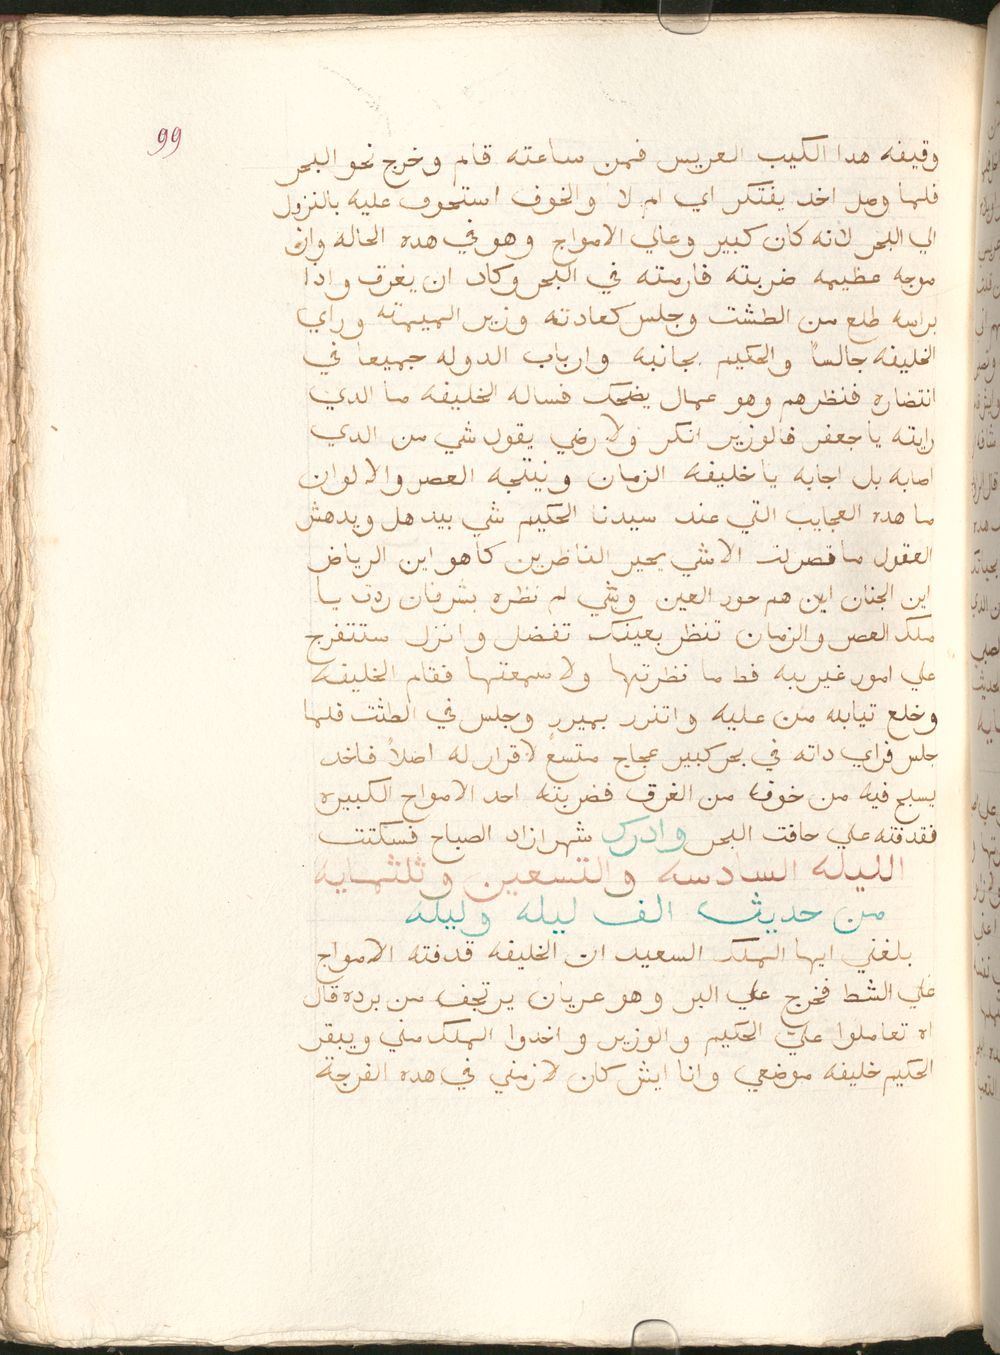 99
وقيفه هدا الكيب العريس فمن ساعته قام وخرج نحو البحر
فلما وصل اخد يفتكر اي ام لا والخوف استحوف عليه بالنزول
الي البحر لانه كان كبير وعالي الامواج وهو في هده الحاله واذ
موجه عظيمه ضربته فارمته في البحر وكاد ان يغرق واذا
براسه طلع من الطشت وجلس كعادته وزير الميمنه وراي
الخليفه جالساً والحكيم بجانبه وارباب الدوله جميعا في
انتضاره فنظرهم وهو عمال يضحك فساله الخليفه ما الدي
رايته يا جعفر فالوزير انكر ولا رضي يقول شي من الدي
اصابه بل اجابه يا خليفه الزمان ونيتجه العصر والالوان
ما هده العجايب التي عند سيدنا الحكيم شي بيدهل ويدهش
العقول ما قصرت الاشي يحير الناظرين كاهو اين الرياض
اين الجنان اين هم حور العين وشي لم نظره بشر فان ردت يا
ملك العصر والزمان تنظر بعينك تفضل وانزل ستتفرج
علي امور غريبه قط ما نظرتها ولا سمعتها فقام الخليفه
وخلع تيابه من عليه واتنزر بميزر وجلس في الطشت فلما
جلس فراي داته في بحر كبير عجاج متسع لا قرار له اصلاً فاخد
يسبح فيه من خوفه من الغرق فضربته احد الامواج الكبيره
فقدفته علي حافت البحر وادرك شهرازاد الصباح فسكتت
الليله السادسه والتسعين وثلثمايه
من حديث الف ليله وليله
بلغني ايها الملك السعيد ان الخليفه قدفته الامواج
علي الشط فخرج علي البر وهو عريان يرتجف من برده قال
اه تعاملوا عليّ الحكيم والوزير واخدوا الملك مني ويبقر
الحكيم خليفه موضعي وانا ايش كان لازمني في هده الفرجة